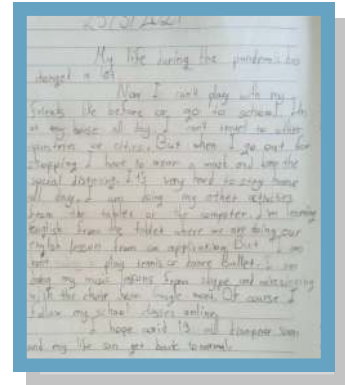 23/3/2021
My life during the pandemic has
changed a lot.
Now I can't play with my
friends like before or go to school. I'm
at my house all day. I can't travel to other
countries or cities. But when I go out for
shopping I have to wear a mask and keep the
social distancing. It is very hard to stay home
all day. I am doing my other activities
from the tablet or the computer. I'm learning
english from the tablet where we are doing our
english lesson from an application. But I am
not play tennis or dance ballet. I am
doing my music lessons from skype and
with the choir from google meet. Of course I
follow my school classes online.
I hope covid 19 will disappear soon
and my life can get back to normal.